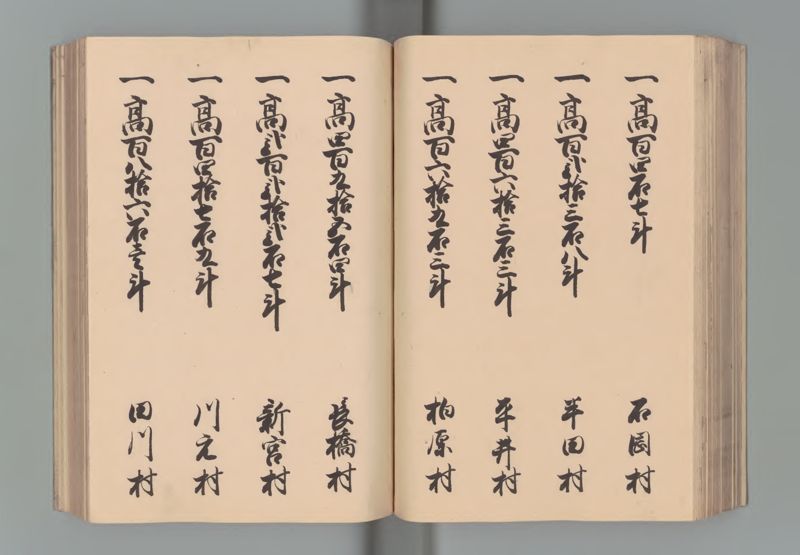 一高百四石七斗 石岡村
一高百弐拾三石八斗 半田村
一高四百六拾三石三斗 平井村
一高百六拾九石二斗 柏原村
一高四百九拾五石四斗 長橋村
一高弐百弐拾弐石七斗 新宮村
一高百四拾七石九斗 川元村
一高百八拾六石壱斗 田川村